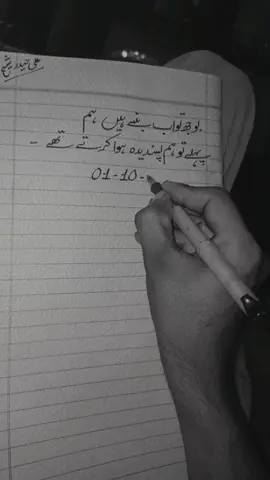 علی حیدر شیخ
بوجھ تو اب بنے ہیں ہم
پہلے تو ہم پسندیدہ ہوا کرتے تھے -
01-10-